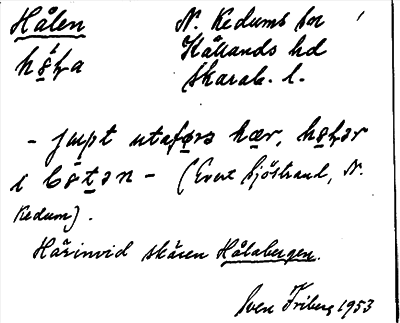 Hålen N. Kedums sn
Kållands hd
hå̱ɫa Skarab. l.
- ju̱pt utafø̱rs hær, hå̱ɫər
i bå̱tən - (Evert Sjöstrand, N.
Kedum).
Härinvid skären Hålabergen.
Sven Friberg 1953